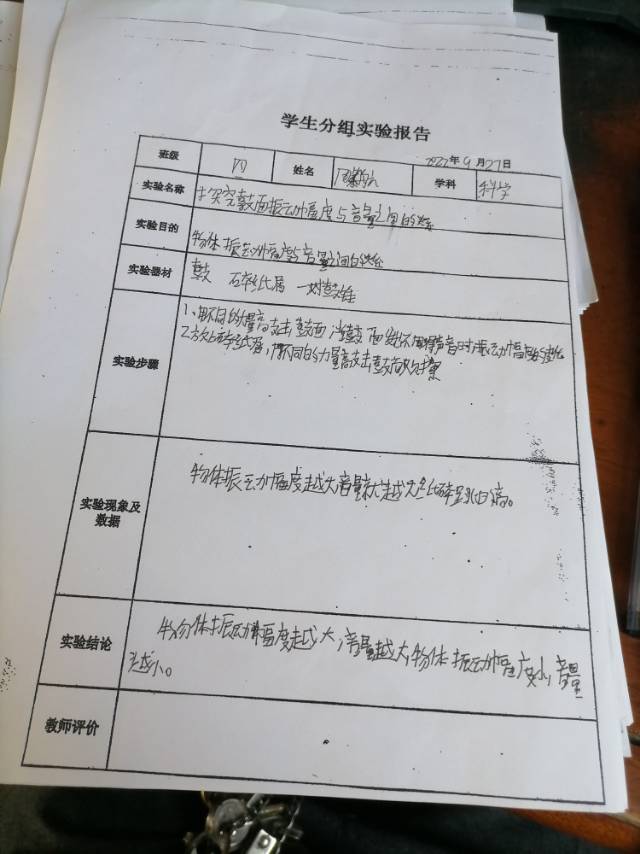 学生分组实验报告
2022年9月27日
班级 四 姓名 学科 科学
实验名称 探究鼓面振动幅度与音量之间的关系
实验目的 物体振动幅度与音量之间的关系
实验器材 鼓 碎纸屑 一对鼓锤
实验步骤
1、用不同的力量敲击鼓面
用不同的力量敲击鼓
实验现象及
数据
物体振动幅度越大音量就越大
高。
实验结论 物体振动幅度越大,音量越大,物体振动幅度小,音量
越小。
教师评价